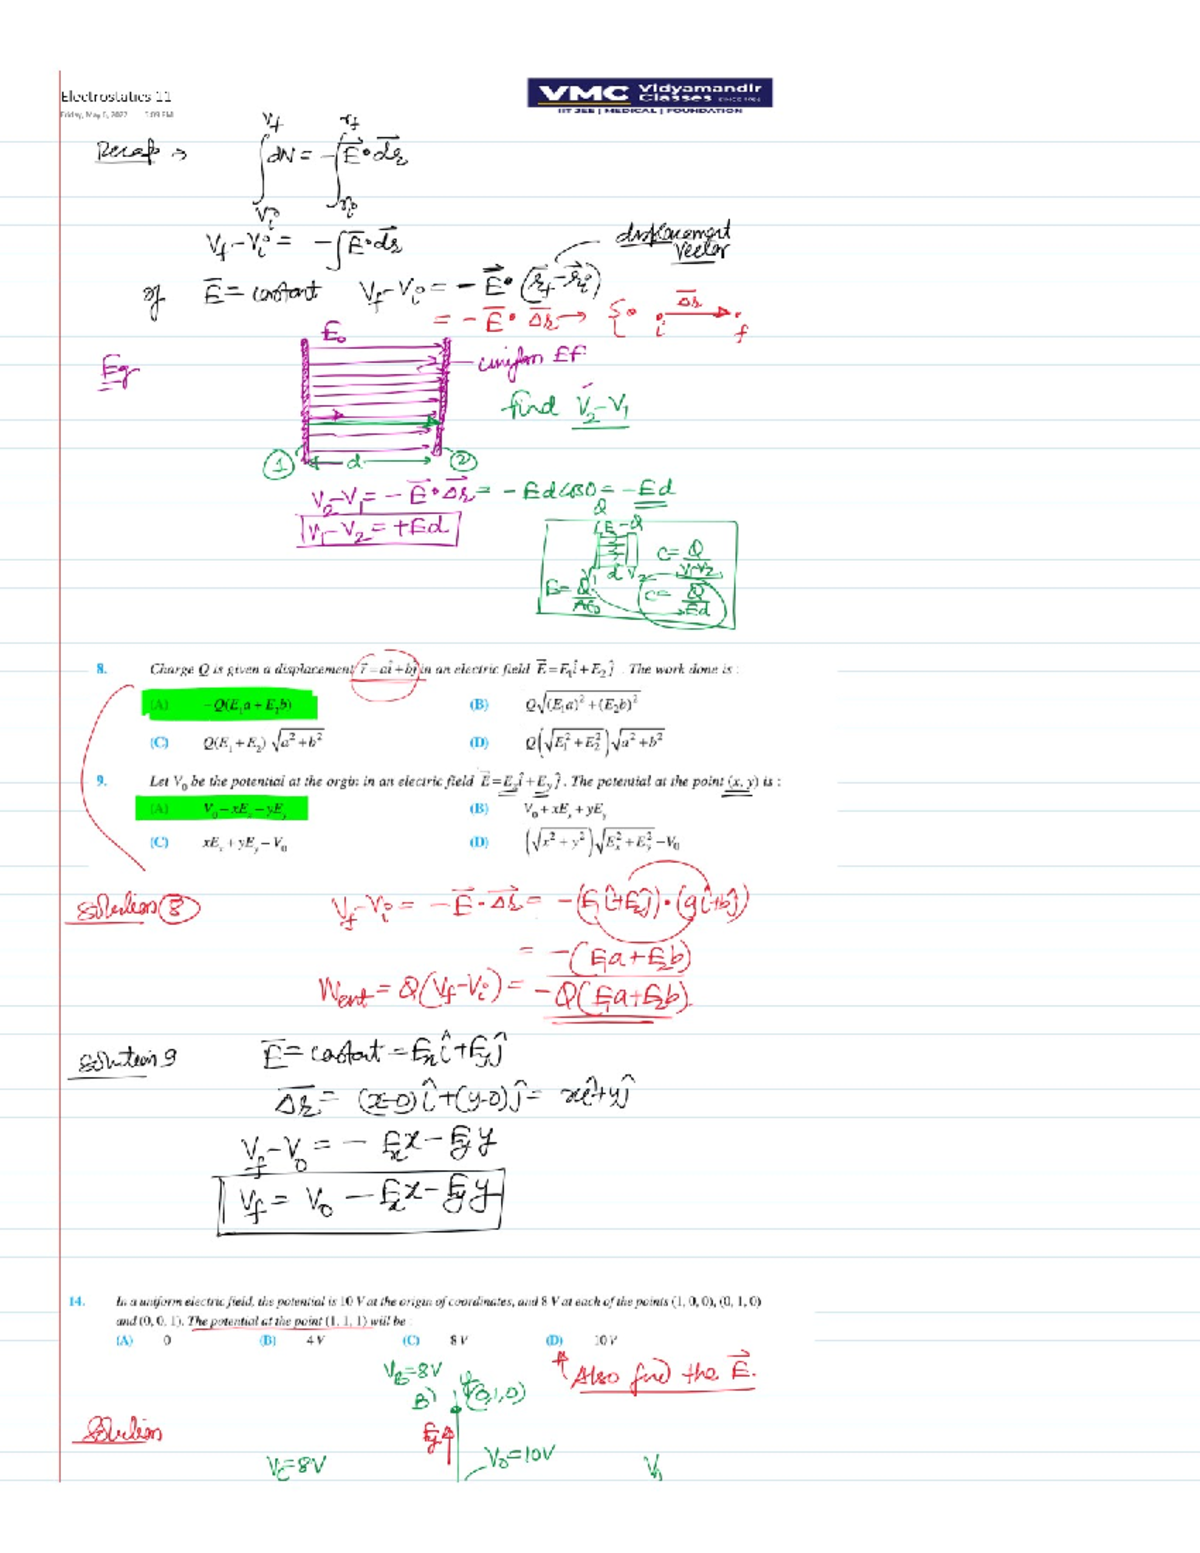 Electrostatics 11
VMC Vidyamandir Classes SINCE 1986
IIT JEE | MEDICAL | FOUNDATION
Friday, May 6, 2022
Recap ⇒ ∫dV = -∫E⃗•dr⃗
Vf - Vi = -∫E⃗•dr⃗
displacement vector
If E⃗ = constant Vf - Vi = -E⃗•(r⃗f - r⃗i)
= -E⃗•Δr⃗ → i Δr⃗ f
E₀
Eg uniform EF
find V₂-V₁
① d ②
V₂-V₁ = -E⃗•Δr⃗ = -Ed cos0 = -Ed
V₁-V₂ = +Ed
Q E -Q
C = Q/(V₁-V₂)
V₁ d V₂
E = Q/Aε₀ C = Q/Ed
8. Charge Q is given a displacement r⃗ = aî + bĵ in an electric field E⃗ = E₁î + E₂ĵ . The work done is :
(A) -Q(E₁a + E₂b) (B) Q√((E₁a)² + (E₂b)²)
(C) Q(E₁ + E₂) √(a² + b²) (D) Q(√(E₁² + E₂²))√(a² + b²)
9. Let V₀ be the potential at the orgin in an electric field E⃗ = Eₓî + E_yĵ . The potential at the point (x, y) is :
(A) V₀ - xEₓ - yE_y (B) V₀ + xEₓ + yE_y
(C) xEₓ + yE_y - V₀ (D) (√(x² + y²))√(Eₓ² + E_y²) - V₀
Solution ⑧ Vf - Vi = -E⃗•Δr⃗ = -(E₁î + E₂ĵ)•(aî + bĵ)
= -(E₁a + E₂b)
Wext = Q(Vf - Vi) = -Q(E₁a + E₂b).
Solution 9 E⃗ = constant = Eₓî + E_yĵ
Δr⃗ = (x-0)î + (y-0)ĵ = xî + yĵ
Vf - V₀ = -Eₓx - E_y y
Vf = V₀ - Eₓx - E_y y
14. In a uniform electric field, the potential is 10 V at the origin of coordinates, and 8 V at each of the points (1, 0, 0), (0, 1, 0)
and (0, 0, 1). The potential at the point (1, 1, 1) will be :
(A) 0 (B) 4 V (C) 8 V (D) 10 V
* Also find the E⃗.
V_B = 8V
B) (0,1,0)
Solution E_y
V₀ = 10V
V_C = 8V